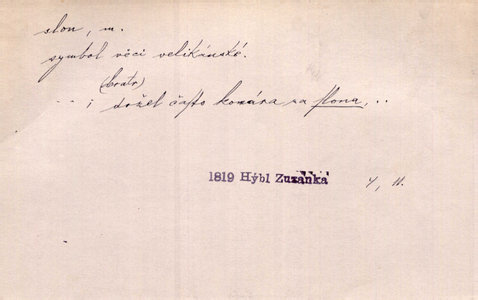 slon, m.
symbol věci velikánské.
(bratr)
.. i držel často komára za slona, ..
1819 Hýbl Zuzanka